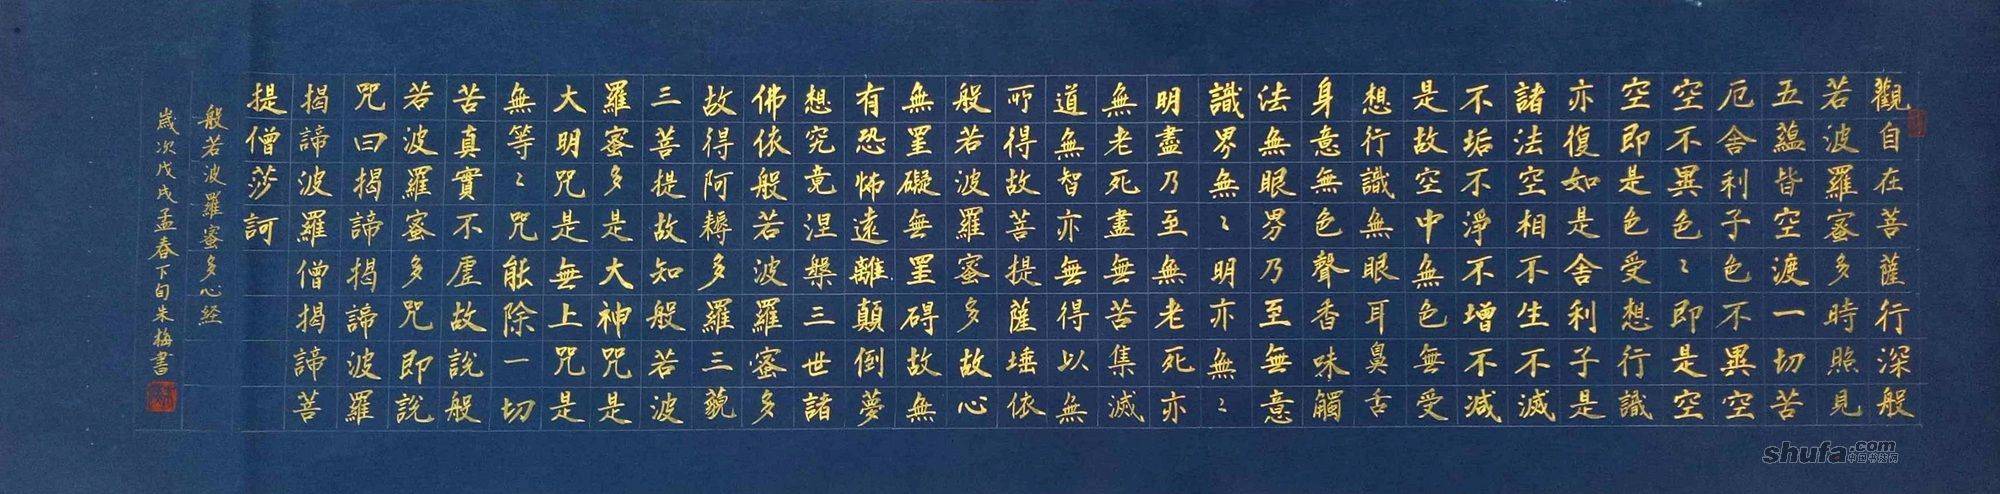 觀自在菩薩行深般
若波羅蜜多時照見
五蘊皆空渡一切苦
厄舍利子色不異空
空不異色〻即是空
空即是色受想行識
亦復如是舍利子是
諸法空相不生不滅
不垢不淨不增不減
是故空中無色無受
想行識無眼耳鼻舌
身意無色聲香味觸
法無眼界乃至無意
識界無〻明亦無〻
明盡乃至無老死亦
無老死盡無苦集滅
道無智亦無得以無
所得故菩提薩埵依
般若波羅蜜多故心
無罣礙無罣碍故無
有恐怖遠離顛倒夢
想究竟涅槃三世諸
佛依般若波羅蜜多
故得阿耨多羅三藐
三菩提故知般若波
羅蜜多是大神咒是
大明咒是無上咒是
無等〻咒能除一切
苦真實不虛故說般
若波羅蜜多咒即說
咒曰揭諦揭諦波羅
揭諦波羅僧揭諦菩
提僧莎訶
般若波羅蜜多心経
歲次戊戌孟春下旬朱梅書
shufa.com
中国书法网